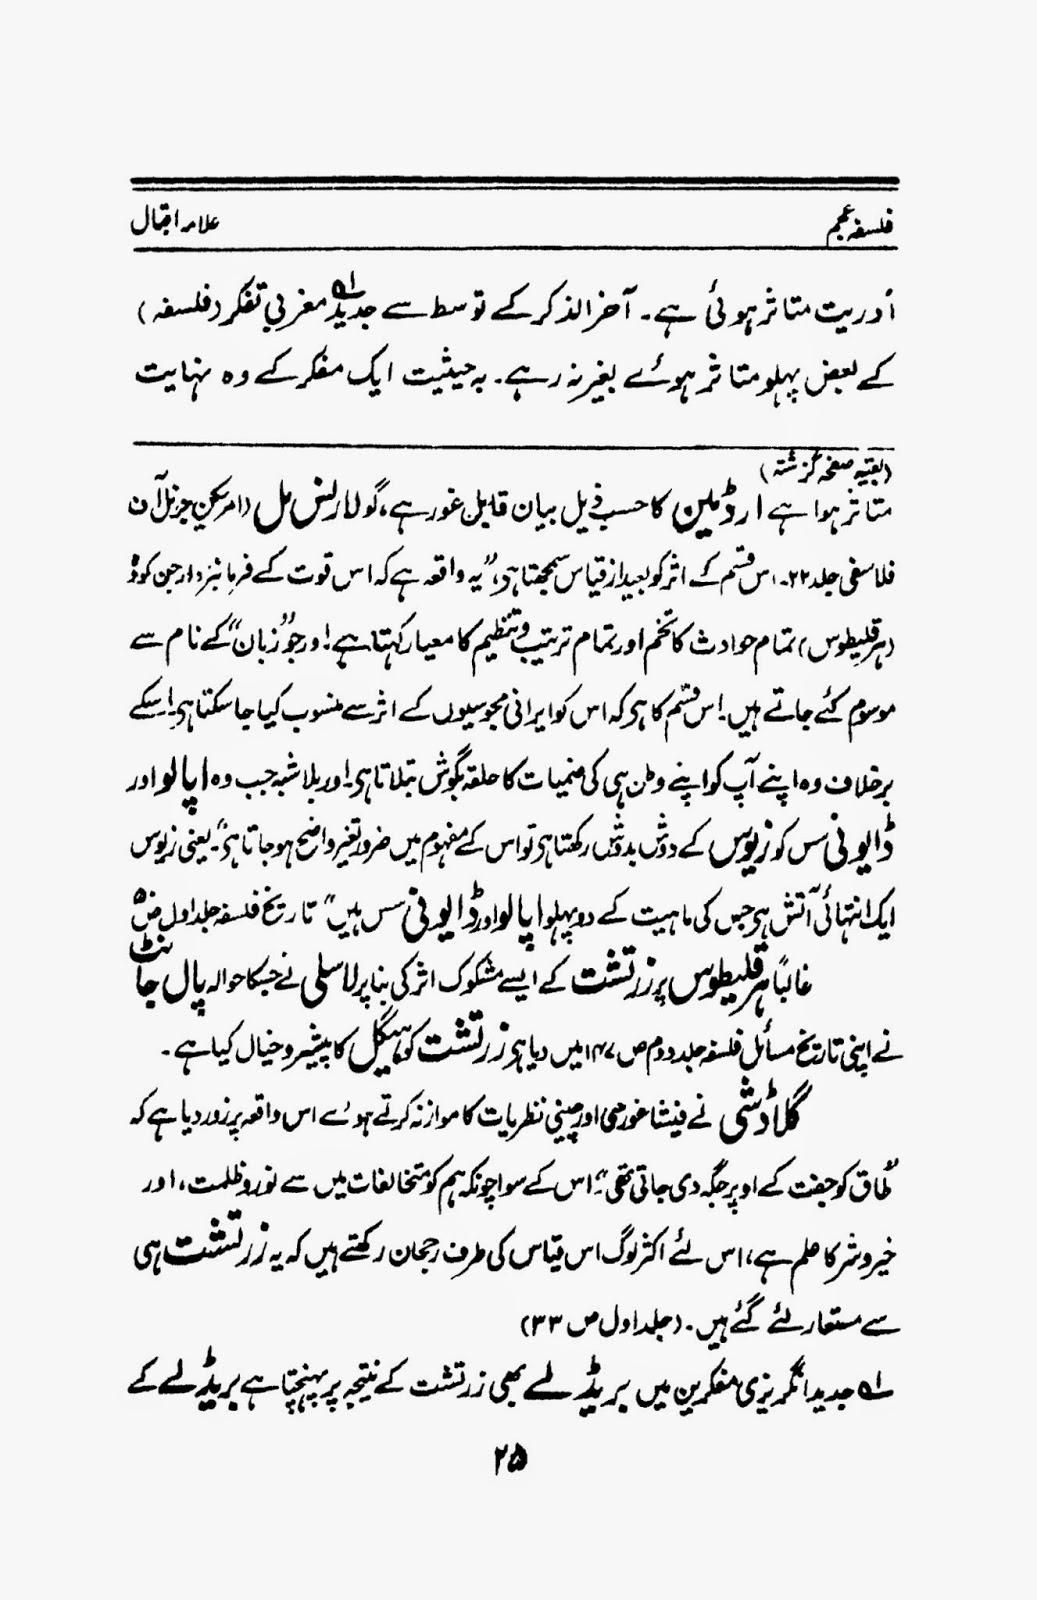 فلسفہ عجم
علامہ اقبال
أدریت متاثر ہوئی ہے۔ آخر الذکر کے توسط سے جدید لہ مغربی تفکر (فلسفہ)
کے بعض پہلو متاثر ہوئے بغیر نہ رہے۔ بہ حیثیت ایک مفکر کے وہ نہایت
(بقیہ صفحہ گزشتہ)
متاثر ہوا ہے ارڈمین کا حسب ذیل بیان قابل غور ہے، گو لارنس مل (امریکن جرنل آن
فلاسفی جلد ۲۲۔ اس قسم کے اثر کو بعید از قیاس سمجھتا ہی، "یہ واقعہ ہے کہ اس قوت کے فرمانبردار جن کو وہ
(ہرقلیطوس) تمام حوادث کا تخم اور تمام ترتیب و تنظیم کا معیار کہتا ہے! ور جو "زبان" کے نام سے
موسوم کئے جاتے ہیں۔ اس قسم کا ہی کہ اس کو ایرانی مجوسیوں کے اثر سے منسوب کیا جا سکتا ہی! سکے
برخلاف وہ اپنے آپ کو اپنے وطن ہی کی صنمیات کا حلقہ بگوش بتلاتا ہی! ور بلا شبہ جب وہ اپالو اور
ڈایونی سس کو زیوس کے دوش بدوش رکھتا ہی تو اس کے مفہوم میں ضرور تغیر واضح ہو جاتا ہی" یعنی زیوس
ایک انتہائی آتش ہی جس کی ماہیت کے دو پہلو اپالو اور ڈایونی سس ہیں" تاریخ فلسفہ جلد اول ص ۵
غالباً ہرقلیطوس پر زرتشت کے ایسے مشکوک اثر کی بنا پر لاسلی نے جسکا حوالہ پال جانٹ
نے اپنی تاریخ مسائل فلسفہ جلد دوم ص ۱۴۷ میں دیا ہی زرتشت کو ہیگل کا پیشرو خیال کیا ہے۔
گلاڈشی نے فیثاغورثی اور چینی نظریات کا موازنہ کرتے ہوئے اس واقعہ پر زور دیا ہے کہ
"طاق کو جفت کے اوپر جگہ دی جاتی تھی"۔ اس کے سوا چونکہ ہم کو متخالفات میں سے نور و ظلمت، اور
خیر و شر کا علم ہے، اس لئے اکثر لوگ اس قیاس کی طرف رجحان رکھتے ہیں کہ یہ زرتشت ہی
سے مستعار لئے گئے ہیں۔ (جلد اول ص ۳۳)
لہ جدید انگریزی مفکرین میں بریڈلے بھی زرتشت کے نتیجہ پر پہنچتا ہے بریڈلے کے
۲۵